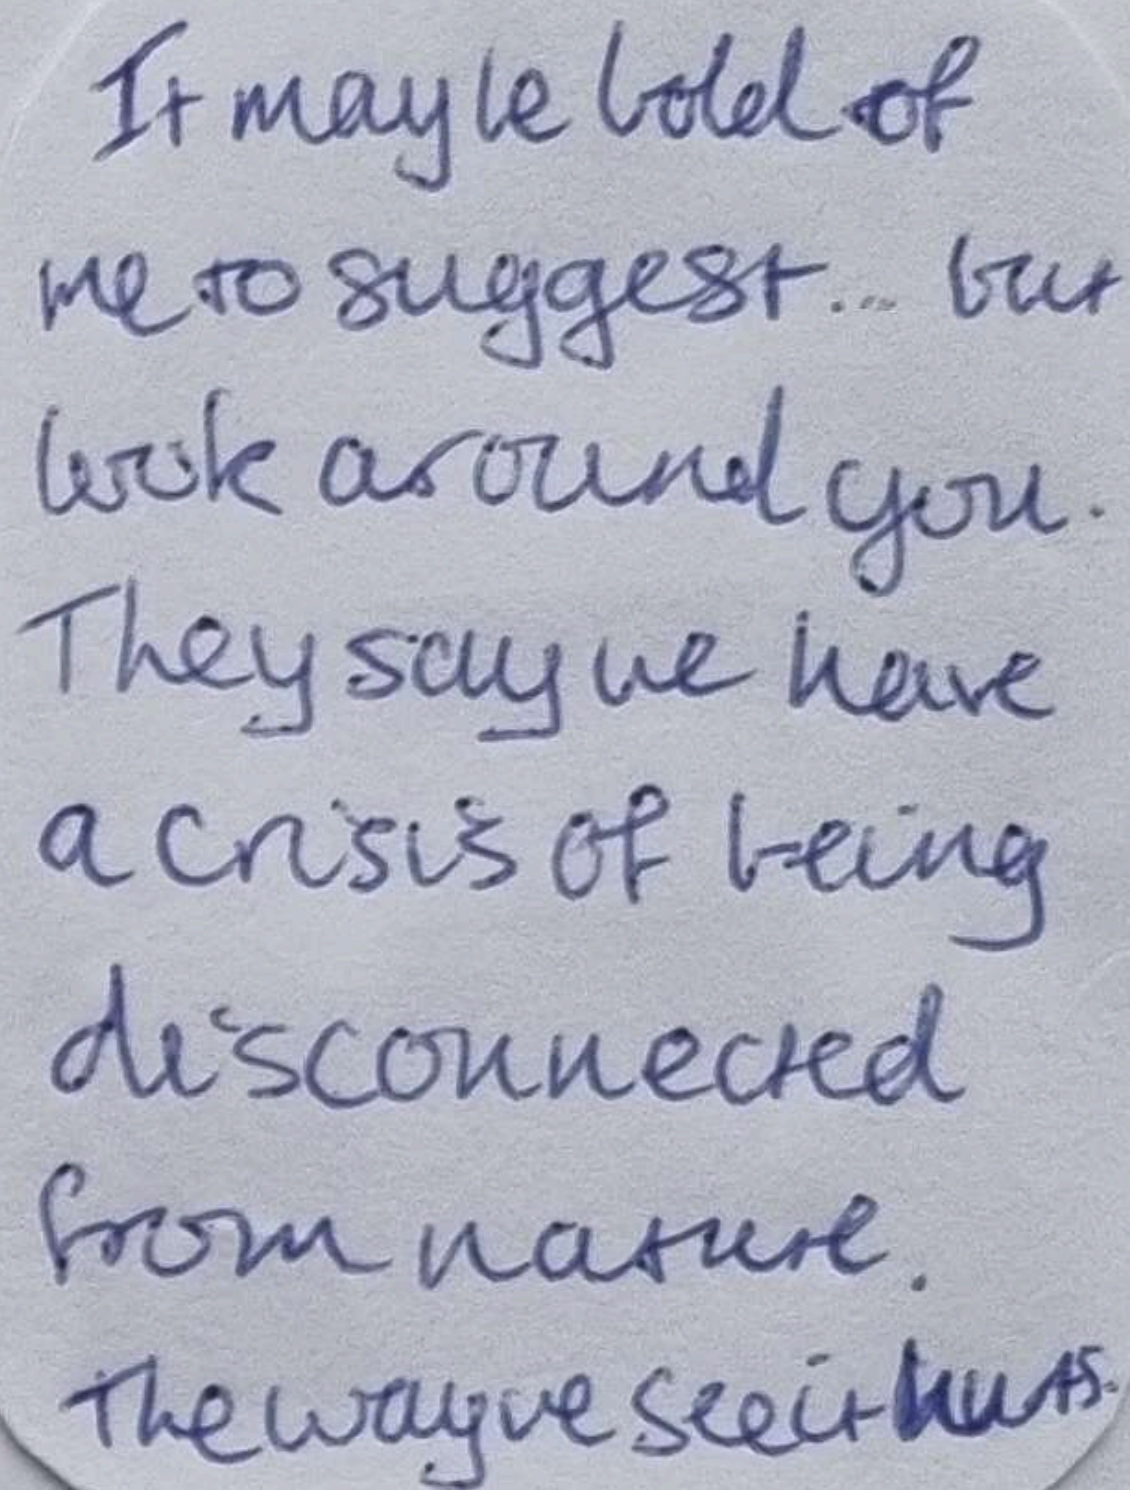 It may be bold of
me to suggest... but
look around you.
They say we have
a crisis of being
disconnected
from nature.
The way we see it hurts.